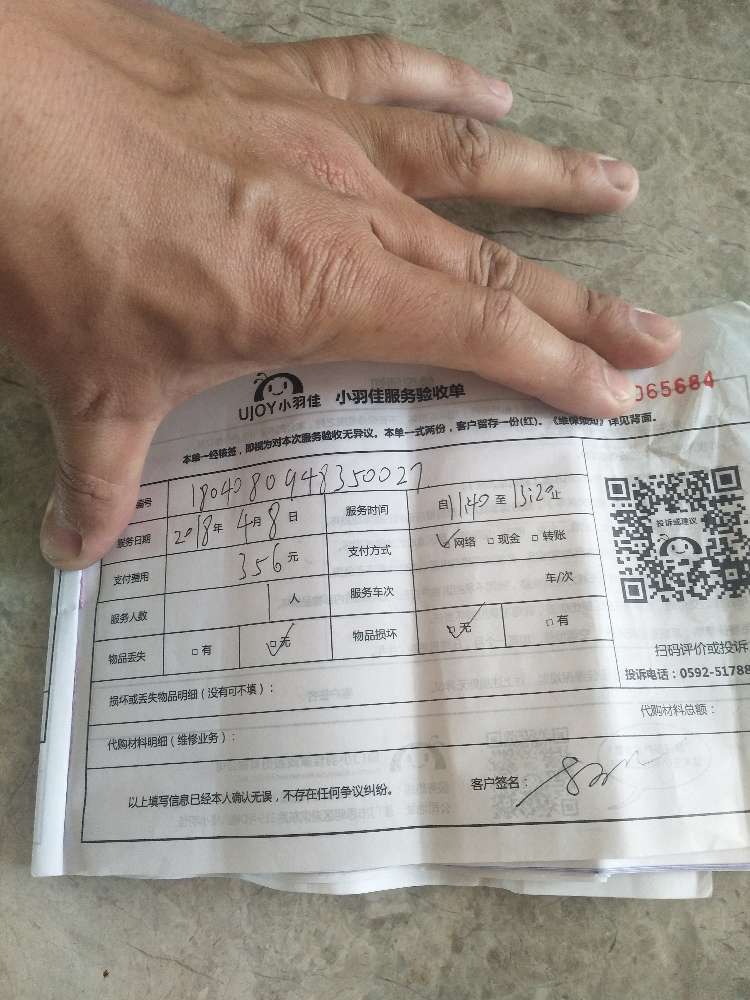 UJOY小羽佳 小羽佳服务验收单
065684
本单一经核签,即视为对本次服务验收无异议。本单一式两份,客户留存一份(红)。《维保须知》详见背面。
编号 1804080948350027
服务日期 2018年4月8日 服务时间 自11:40至13:20止
支付费用 356元 支付方式 网络 现金 转账
服务人数 1人 服务车次 车/次
物品丢失 有 无 物品损坏 无 有
投诉或建议
扫码评价或投诉
投诉电话:0592-51788
损坏或丢失物品明细(没有可不填):
代购材料明细(维修业务): 代购材料总额:
以上填写信息已经本人确认无误,不存在任何争议纠纷。 客户签名: